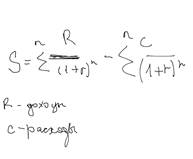 S = Σⁿ R/(1+r)ⁿ - Σⁿ C/(1+r)ⁿ
R - доходы
C - расходы